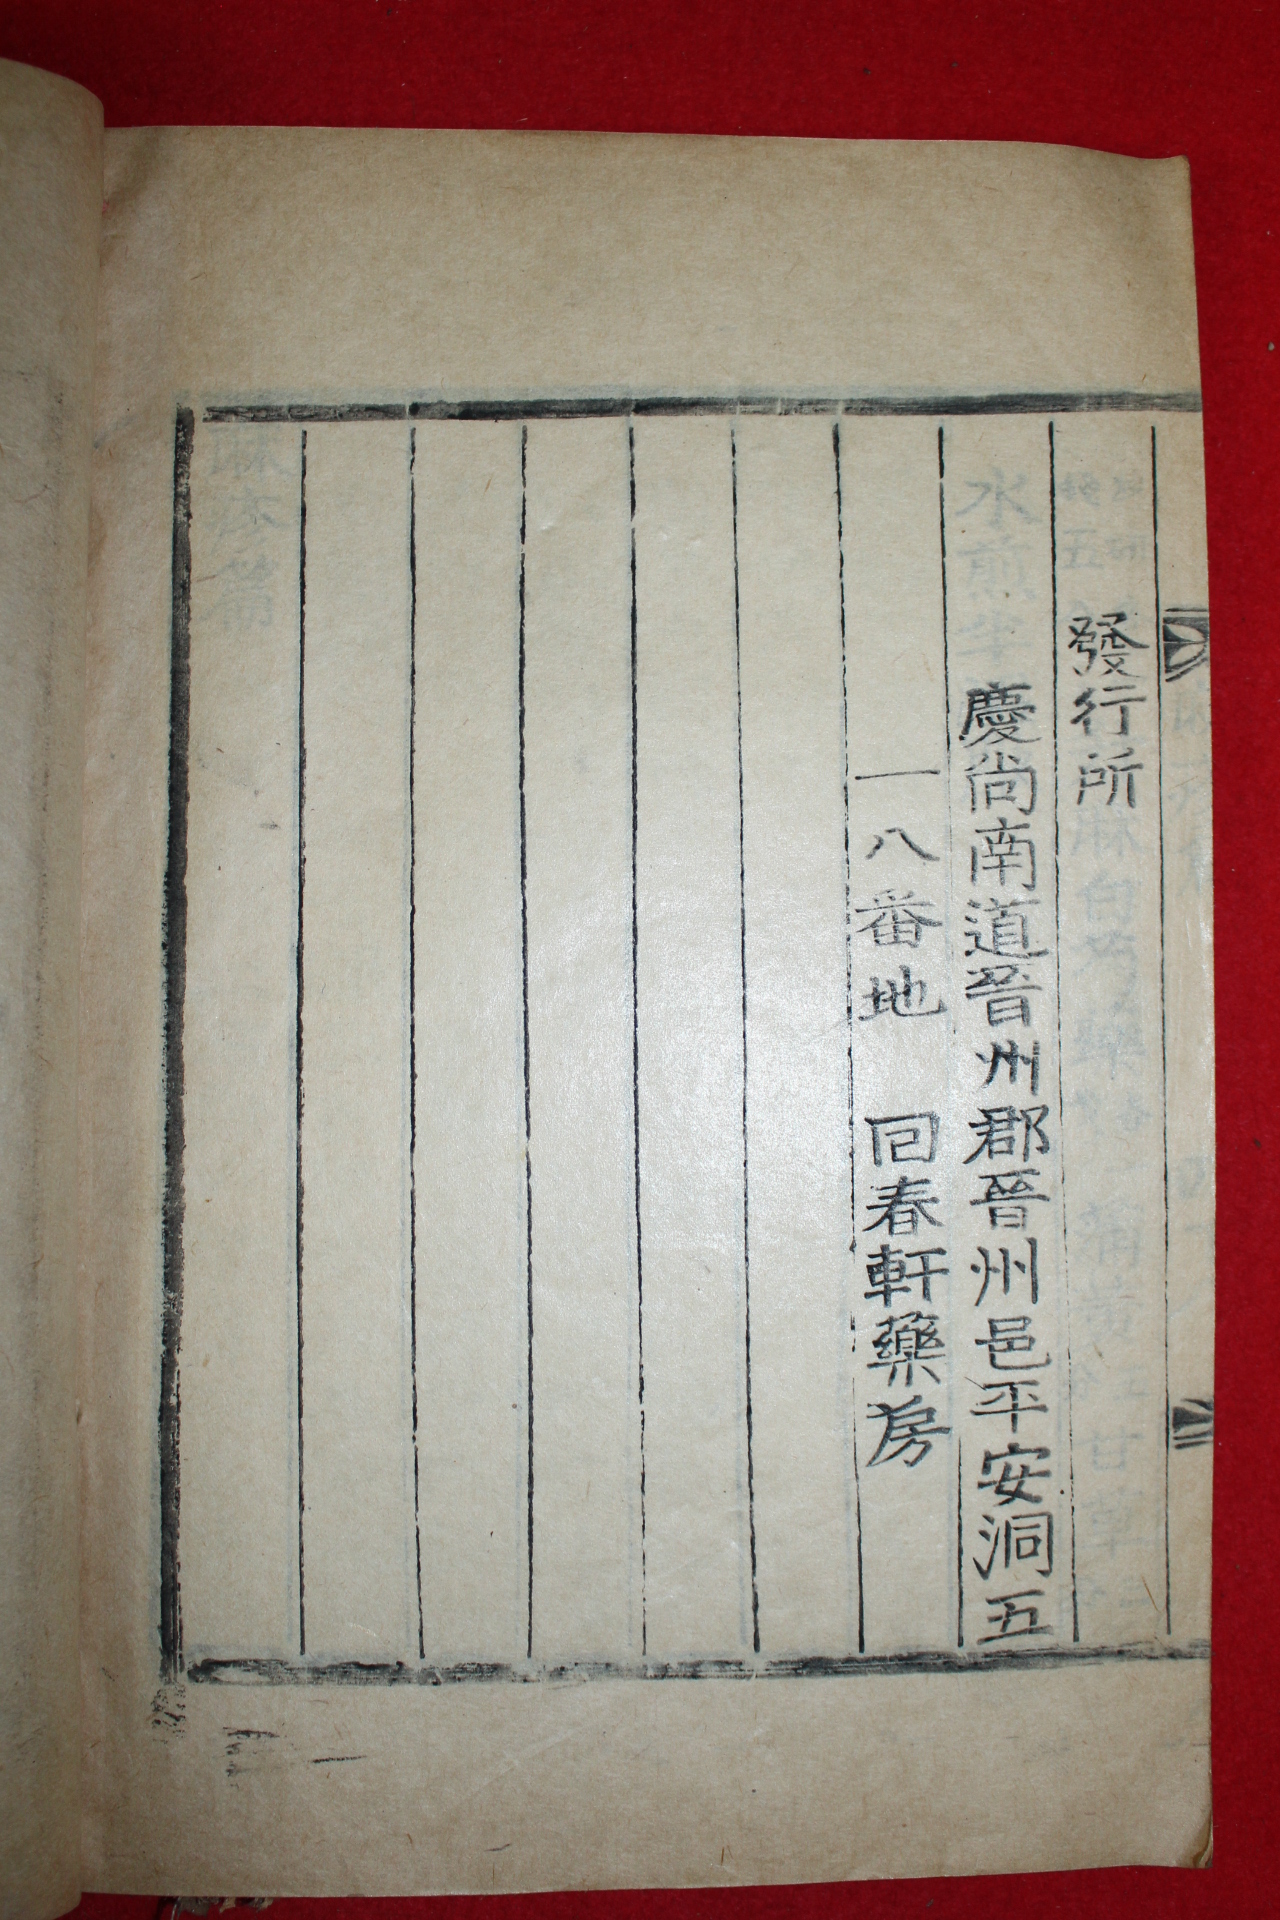 發行所
慶尚南道晉州郡晉州邑平安洞五
一八番地　回春軒藥房